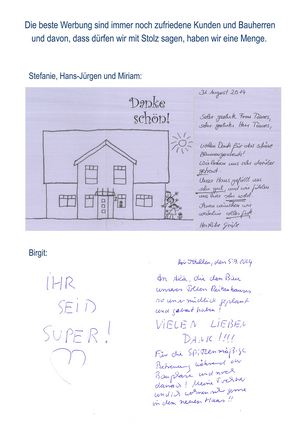 Die beste Werbung sind immer noch zufriedene Kunden und Bauherren
und davon, dass dürfen wir mit Stolz sagen, haben wir eine Menge.
Stefanie, Hans-Jürgen und Miriam:
Danke
schön!
August 2014
Sehr geehrte Frau
sehr geehrter Herr
vielen Dank für das schöne
gefreut
Unser Haus gefällt uns
sehr gut, und wir fühlen
uns hier sehr wohl
Ihnen wünschen wir
weiterhin
Herzliche Grüße
Birgit:
IHR
SEID
SUPER!
den
An alle, die den Bau
unseres
so unermüdlich geplant
und gebaut haben!
VIELEN LIEBEN
DANK!!!
Für die spitzenmäßige
Betreuung während der
Bauphase und noch
danach! Meine
und ich wohnen sehr gerne
in dem neuen Haus!!